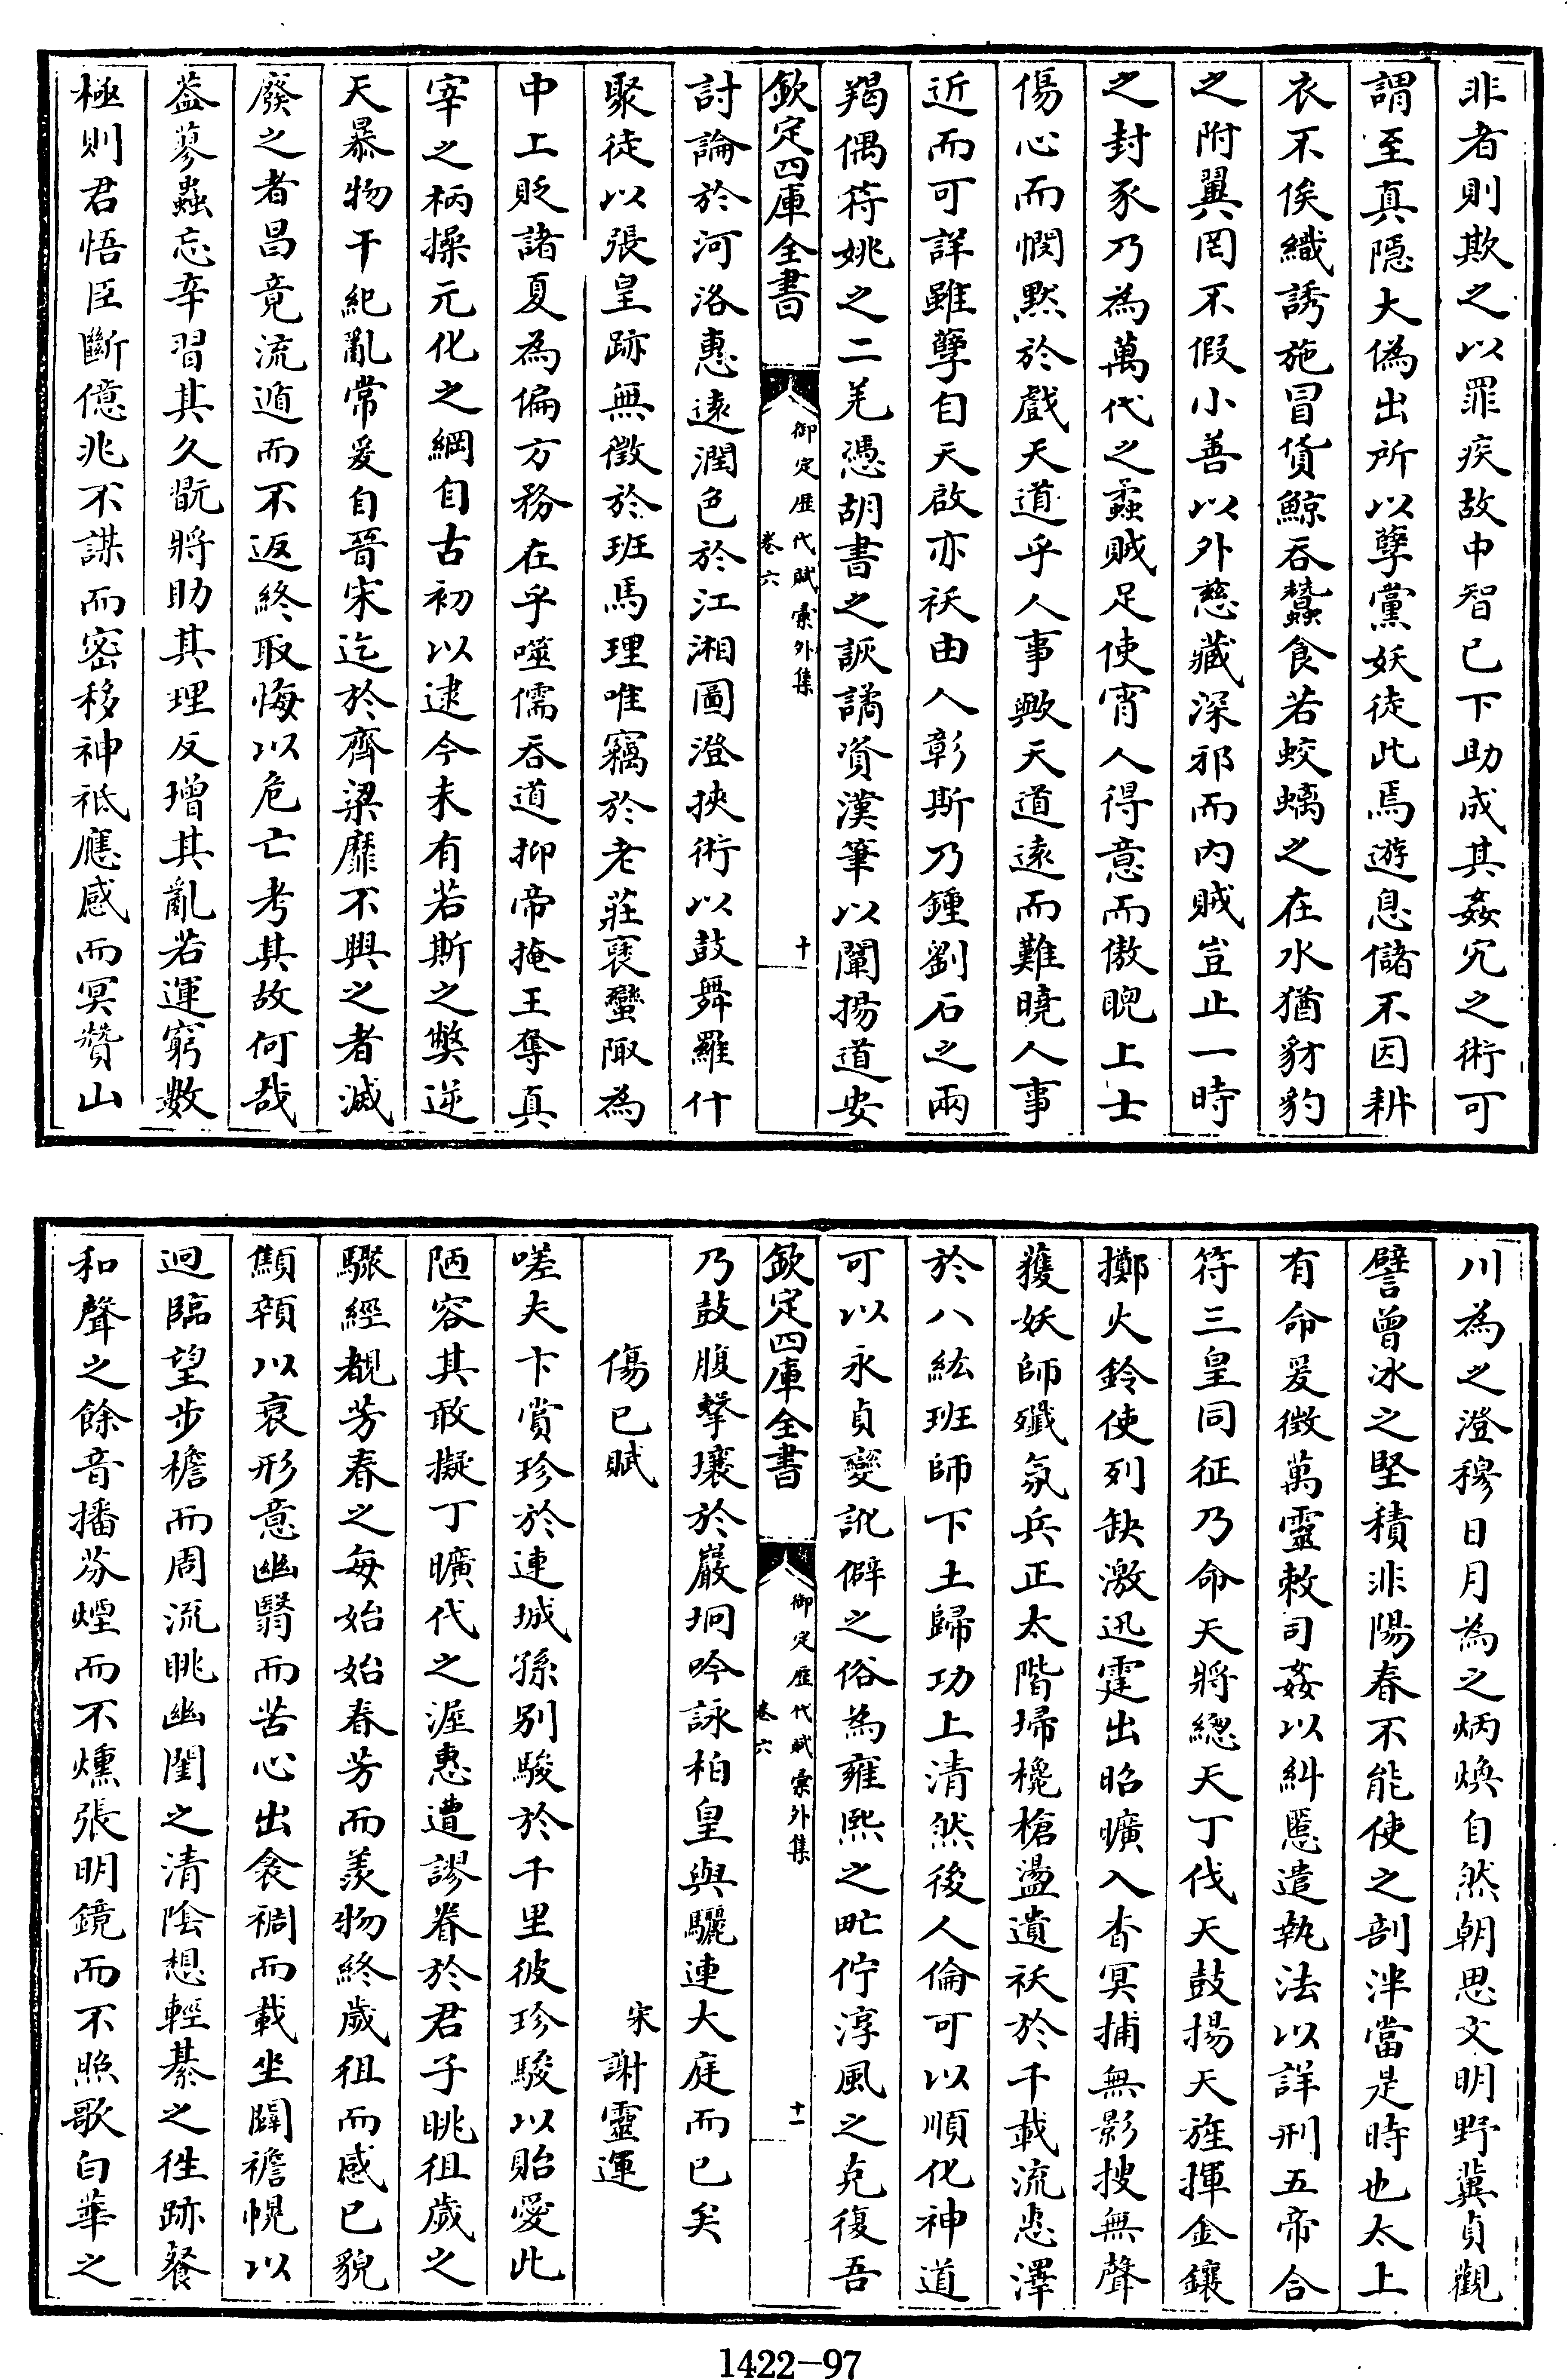 非者則欺之以罪疾故中智已下助成其姦宄之術可
謂至真隱大偽出所以孽黨妖徒此焉遊息儲不因耕
衣不俟織誘施冒貨鯨吞蠶食若蛟螭之在水猶豺豹
之附翼罔不假小善以外慈藏深邪而内賊豈止一時
之封豕乃為萬代之蟊賊足使宵人得意而傲睨上士
傷心而憫黙於戲天道乎人事歟天道逺而難曉人事
近而可詳雖孽自天啟亦祅由人彰斯乃鍾劉石之兩
羯偶苻姚之二羌憑胡書之詼譎資漢筆以闡揚道安
欽定四庫全書
御定歴代賦彙外集
卷六
十
討論於河洛惠逺潤色於江湘圖澄挾術以鼓舞羅什
聚徒以張皇跡無徴於班馬理唯竊於老莊褒蠻陬為
中土貶諸夏為偏方務在乎噬儒吞道抑帝掩王奪真
宰之柄操元化之綱自古初以逮今未有若斯之弊逆
天暴物干紀亂常爰自晉宋迄於齊梁靡不興之者滅
廢之者昌竟流遁而不返終取悔以危亡考其故何哉
葢蓼蟲忘辛習其久翫將助其理反增其亂若運窮數
極則君悟臣斷億兆不謀而密移神祗應感而冥贊山
川為之澄穆日月為之炳煥自然朝思文明野冀貞觀
譬曾冰之堅積非陽春不能使之剖泮當是時也太上
有命爰徴萬靈敕司姦以糾慝遣執法以詳刑五帝合
符三皇同征乃命天將總天丁伐天鼓揚天旌揮金鑲
擲火鈴使列缺激迅霆出昭曠入杳冥捕無影搜無聲
獲妖師殱氛兵正太階掃欃槍盪遺祅於千載流惠澤
於八紘班師下土歸功上清然後人倫可以順化神道
可以永貞變訛僻之俗為雍熙之甿佇淳風之克復吾
欽定四庫全書
御定歴代賦彙外集
卷六
十一
乃鼓腹擊壤於巖坰吟詠柏皇與驪連大庭而已矣
傷已賦
宋謝靈運
嗟夫卞賞珍於連城孫别駿於千里彼珍駿以貽愛此
陋容其敢擬丁曠代之渥惠遭謬眷於君子眺徂歲之
驟經覩芳春之每始始春芳而羨物終歲徂而感已貌
顦顇以衰形意幽翳而苦心出衾裯而載坐闢襜幌以
迥臨望步櫩而周流眺幽閨之清陰想輕綦之徃跡餐
和聲之餘音播芬煙而不燻張明鏡而不照歌白華之
1422-97